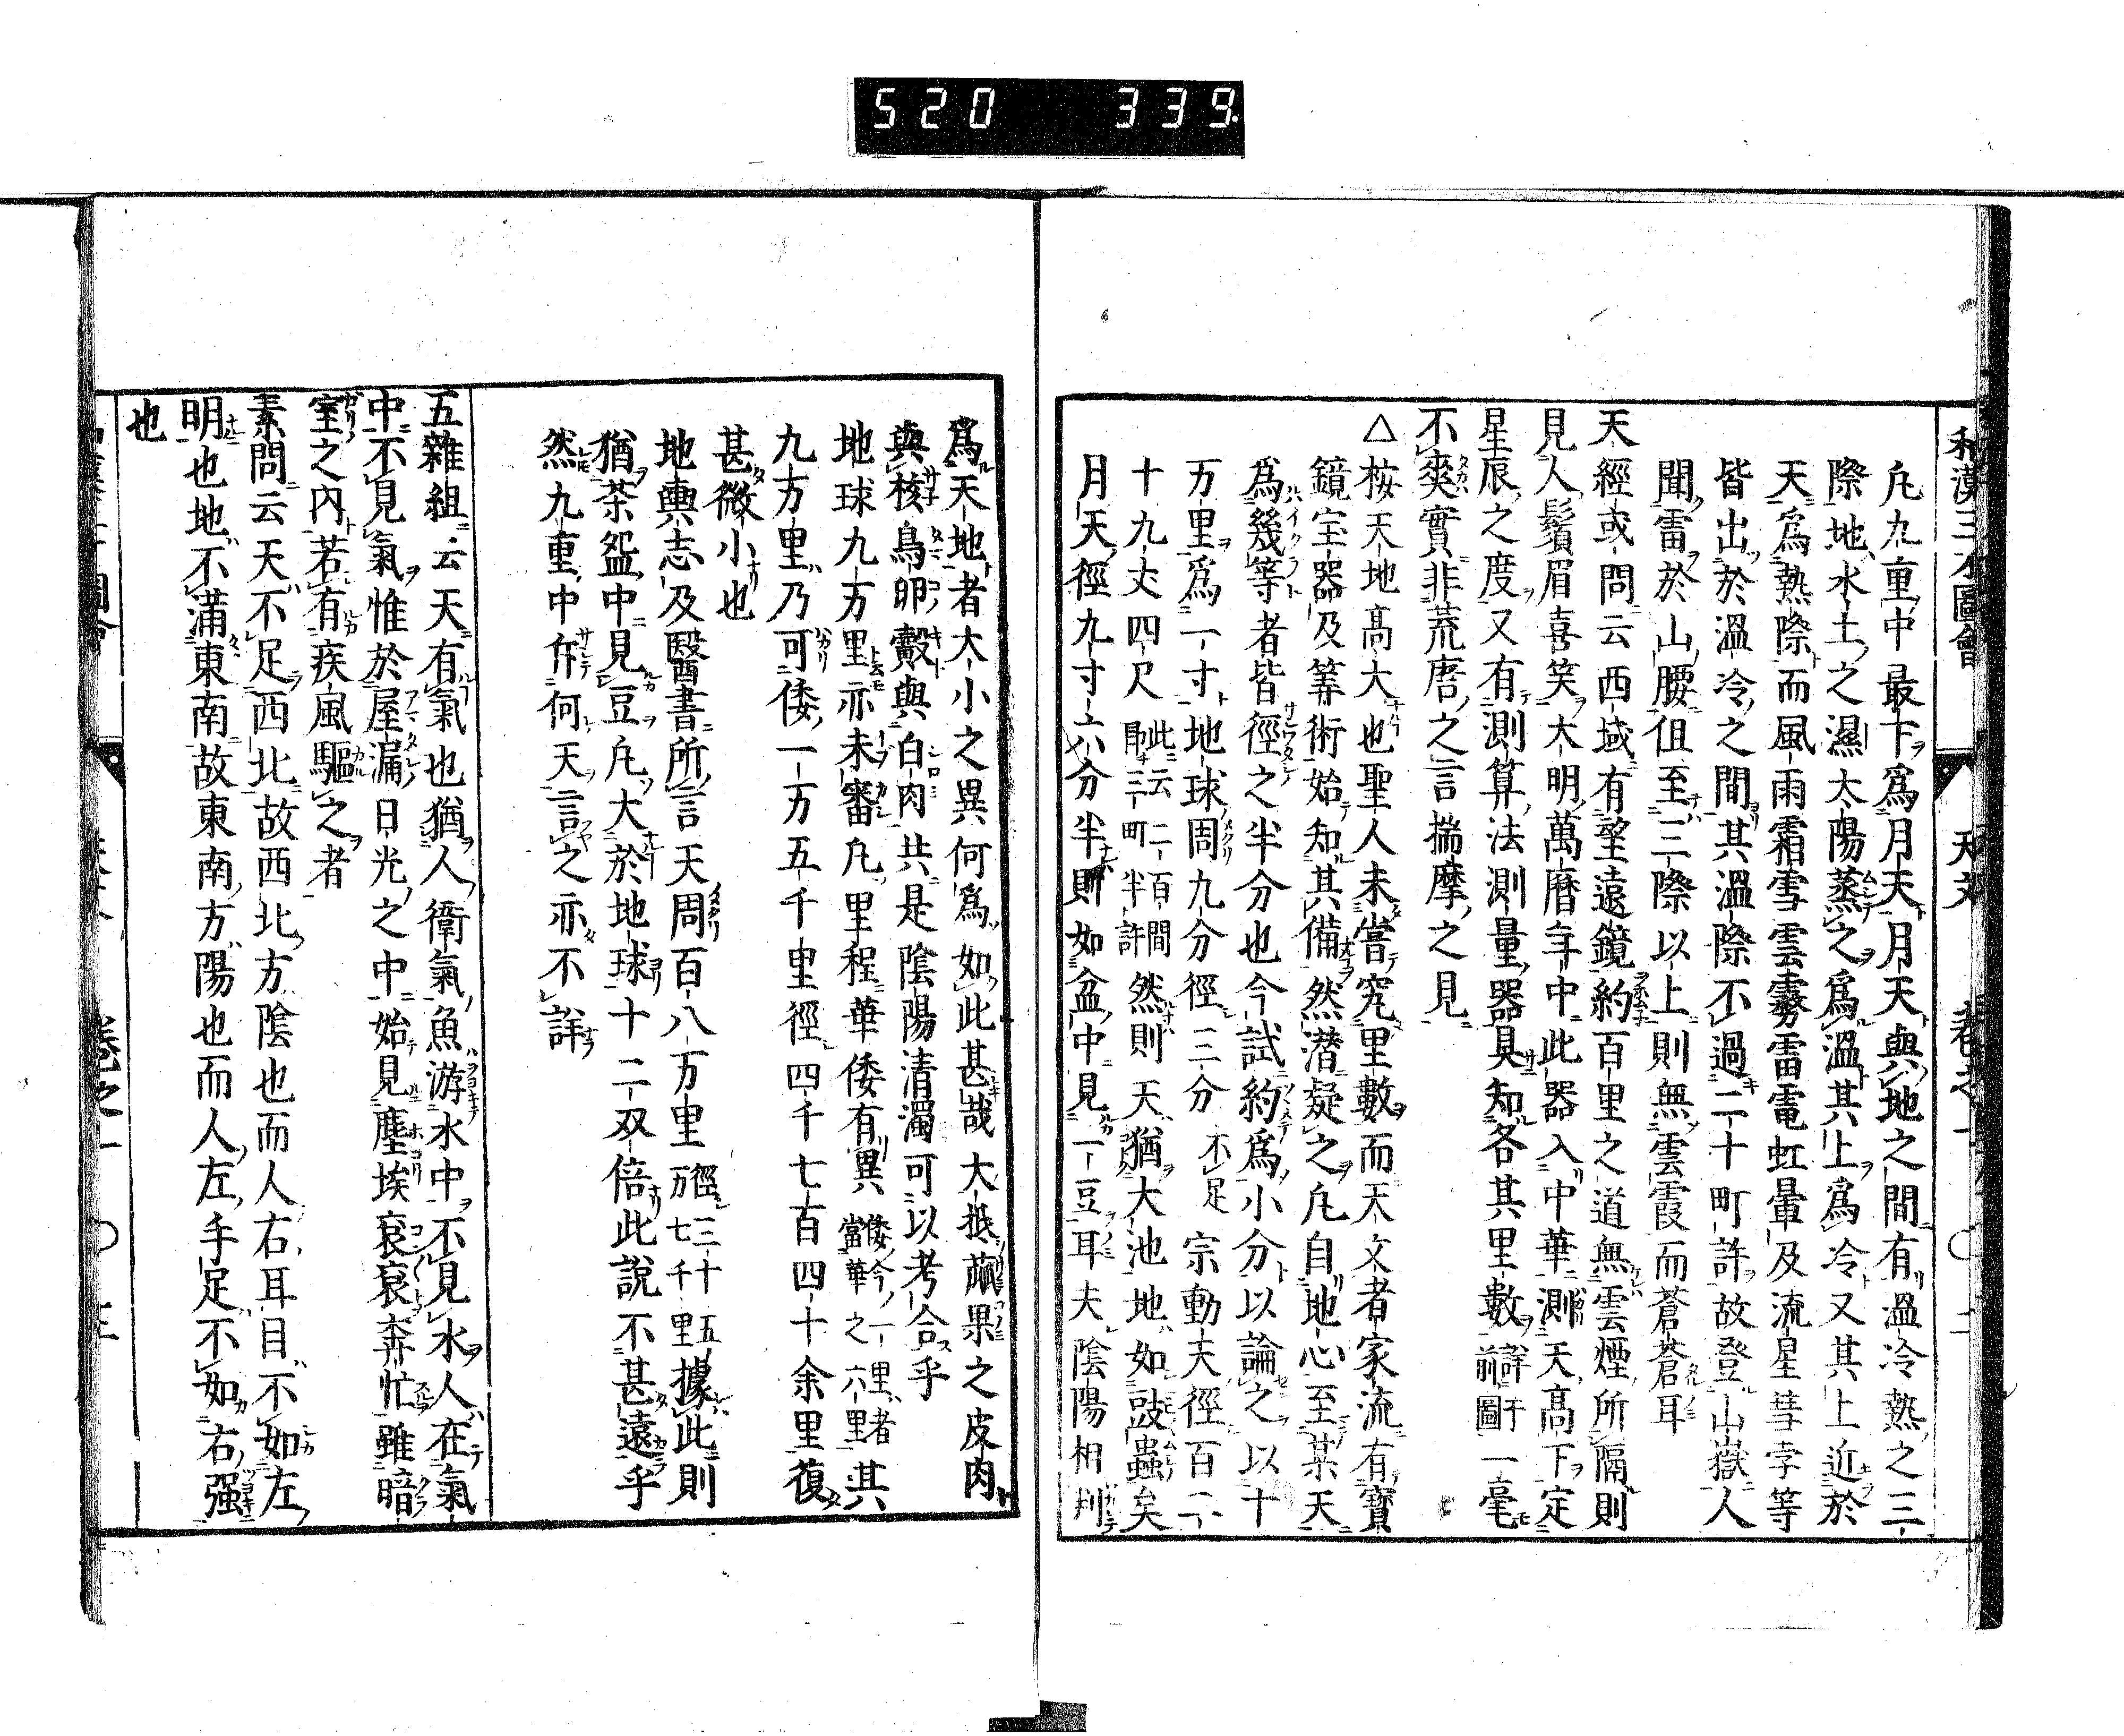 520 339
和漢三才圖會 天文 卷之一 〇 二
凡九重中最下爲月天月天與地之間有溫冷熱之三
際地水土之濕太陽蒸之爲溫其上爲冷又其上近於
天爲熱際而風雨霜雪雲霧雷電虹暈及流星彗孛等
皆出於溫冷之間其溫際不過二十町許故登山嶽人
聞雷於山腰但至三際以上則無雲霞而蒼蒼耳
天經或問云西域有望遠鏡約百里之道無雲煙所隔則
見人鬚眉喜笑大明萬曆年中此器入中華測天高下定
星辰之度又有測算法測量器具知各其里數詳于前圖一毫
不爽實非荒唐之言揣摩之見
△按天地高大也聖人未嘗究里數而天文者家流有寶
鏡宝器及筭術始知其備然潜疑之凡自地心至某天
爲幾等者皆徑之半分也今試約爲小分以論之以十
万里爲一寸地球周九分徑三分不足宗動天徑百二
十九丈四尺此云二百間即三町半許然則天猶大池地如豉蟲矣
月天徑九寸六分半則如盆中見一豆耳夫陰陽相判
爲天地者大小之異何爲如此甚哉大抵蓏果之皮肉
與核鳥卵殼與白肉共是陰陽清濁可以考合乎
地球九万里亦未審凡里程華倭有異倭今一里者當華之六里其
九万里乃可倭一万五千里徑四千七百四十余里復
甚微小也
地輿志及醫書所言天周百八万里徑三十五万七千里據此則
猶茶盌中見豆凡大於地球十二双倍此說不甚遠乎
然九重中仵何天言之亦不詳
五雜組云天有氣也猶人衛氣魚游水中不見水人在氣
中不見氣惟於屋漏日光之中始見塵埃袞袞奔忙雖暗
室之内若有疾風驅之者
素問云天不足西北故西北方陰也而人右耳目不如左
明也地不滿東南故東南方陽也而人左手足不如右强
也
卷之一 〇 三